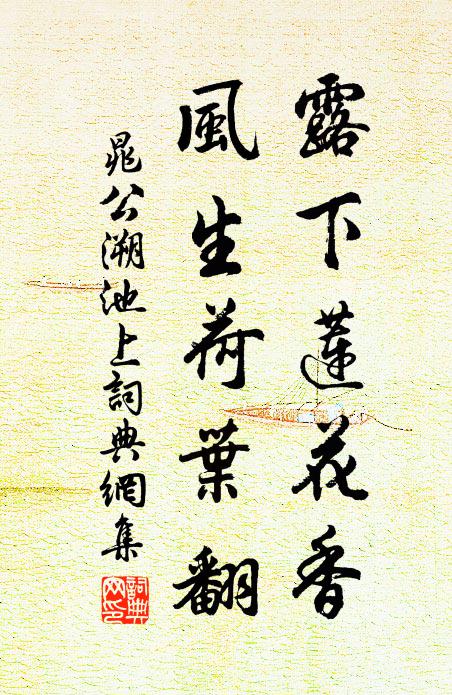 露下蓮花香
風生荷葉翻
晁公溯池上詞典網集
詞典
网印